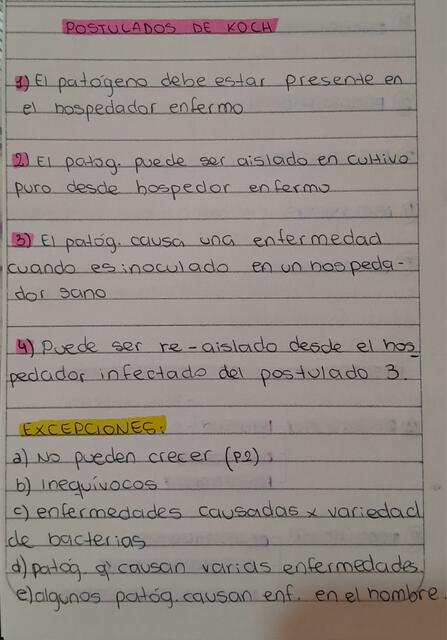 POSTULADOS DE KOCH
1) El patógeno debe estar presente en
el hospedador enfermo
2) El patóg. puede ser aislado en cultivo
puro desde hospedor enfermo
3) El patóg. causa una enfermedad
cuando es inoculado en un hospeda-
dor sano
4) Puede ser re-aislado desde el hos_
pedador infectado del postulado 3.
EXCEPCIONES:
a) No pueden crecer (P2)
b) inequívocos
c) enfermedades causadas x variedad
de bacterias
d) patóg. q' causan varias enfermedades.
e) algunos patóg. causan enf. en el hombre.